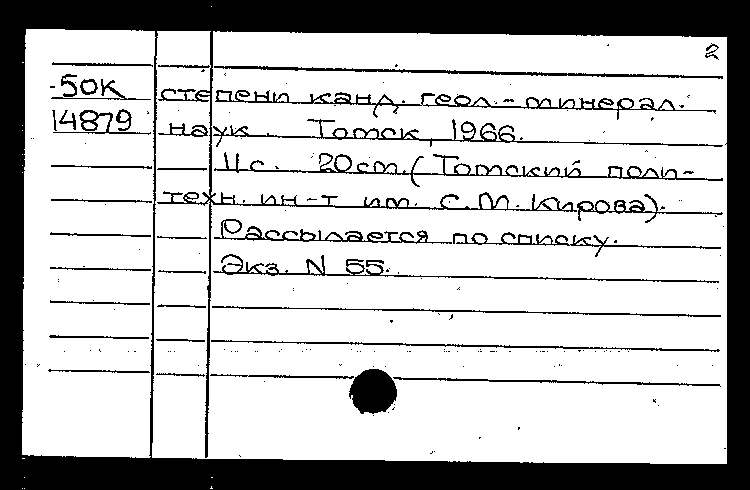 2
-50К степени канд. геол.-минерал.
14879 наук. Томск, 1966.
11с. 20см. (Томский поли-
техн. ин-т им. С.М. Кирова).
Рассылается по списку.
Экз. N 55.